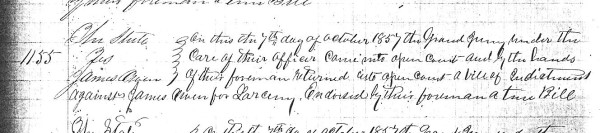 foreman a true Bill
The State } On this the 7th day of October 1857 the Grand Jury under the
1155 vs } Care of their officer Came into open Court and by the hands
James Owen } of their foreman returned into open Court a bill of Endictment
against James Owen for Larceny, Endorsed by their foreman a true Bill
The State } On this the 7th day of October 1857 the Grand Jury under the